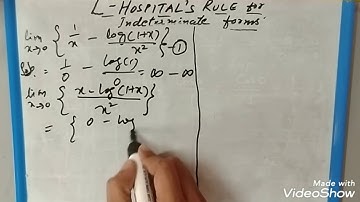 L-HOSPITAL'S RULE for
Indeterminate forms
lim x→0 { 1/x - log(1+x)/x² } -①
Sol. = 1/0 - log(1)/0 = ∞ - ∞
lim x→0 { x - log(1+x) / x² }
= { 0 - log
Made with
VideoShow